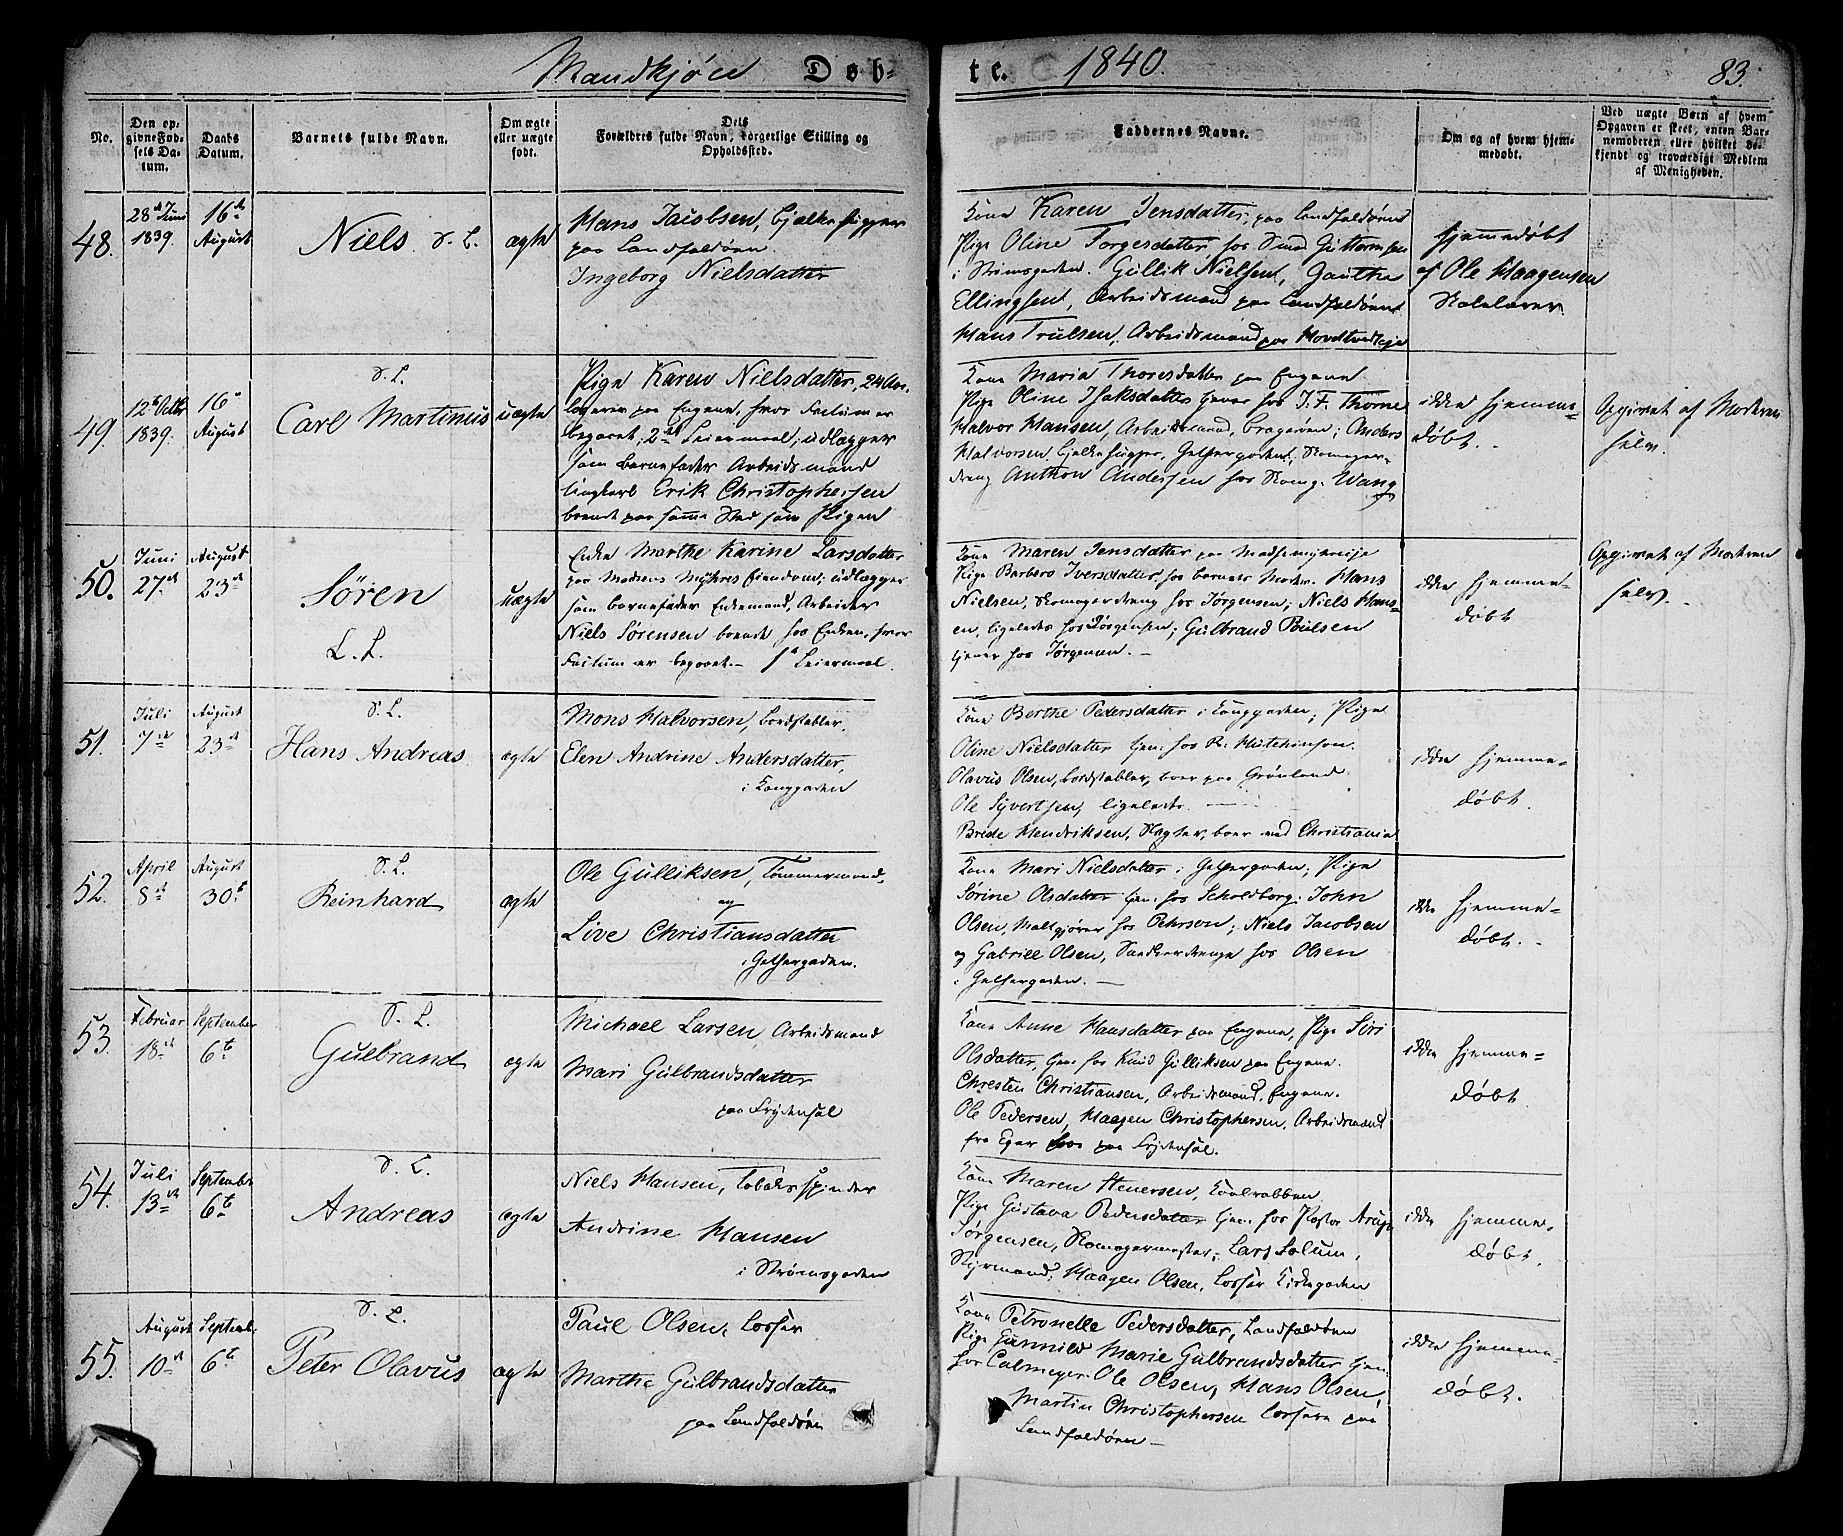 Mandkjøn Døb-
te. 1840. 83.
No.
Den op-
givne Fød-
sels Da-
tum.
Daabs
Datum.
Barnets fulde Navn.
Om ægte
eller uægte
født.
Dets
Forældres fulde Navn, borgerlige Stilling og
Opholdssted.
Faddernes Navne.
Om og af hvem hjem-
medøbt.
Ved uægte Børn af hvem
Opgaven er skeet, enten Bar-
nemoderen eller hvilket be-
kjendt og troværdigt Medlem
af Menigheden.
48.
28de Juni
1839.
16de
August
Niels. S. L.
ægte
Hans Jacobsen, bjælkehugger
paa Landfaldøen.
Ingeborg Nielsdatter
Kone Karen Jensdatter, paa Landfaldøens
Pige Oline Torgesdatter hos Smed Guttormsen
i Strømsgaden. Gullik Nielsen, Gautha
Ellingsen, Arbeidsmænd paa Landfaldøen
Hans Trulsen, Arbeidsmand paa Hovdtvedteje
hjemmedøbt
af Ole Haagensen
Skolelærer.
49.
12te Octbr
1839.
16de
August
S. L.
Carl Martinus
uægte
Pige Karen Nielsdatter, 24 Aar.
logerer paa Engene, hvor Factum er
begaaet, 2det Leiermaal; udlægger
som barnefader Arbeidsmand
ungkarl Erik Christophersen
boende paa samme Sted som Pigen
Kone Maria Thoresdatter paa Engene.
Pige Oline Isaksdatter tjener hos J. F. Thorne
Halvor Hansen, Arbeidsmand, Bragerøen; Anders
Halvorsen, bjelkehugger, Gjethergaden, Skomager-
dreng Anthon Andersen hos Skomg. Wang
ikke hjemme-
døbt.
Opgivet af Moderen
selv.
50.
Juni
27de
August
23de
Søren
L. L.
uægte
Enke Marthe Karine Larsdatter
paa Madsens Myhres Eiendom; udlægger
som barnefader Enkemand, Arbeider
Niels Sørensen boende hos Enken, hvor
Factum er begaaet. 1ste Leiermaal.
Kone Maren Jensdatter paa Madsemyhreneje
Pige Barbero Iversdatter hos barnets Moder. Hans
Nielsen, Skomagerdreng hos Jørgensen; Niels Hans-
en, ligeledes hos Jørgensen; Gulbrand Poulsen
tjener hos Jørgensen.
ikke hjemme-
døbt
Opgivet af Moderen
selv.
51.
Juli
7de
August
23de
S. L.
Hans Andreas.
ægte
Mons Halvorsen, bordstabler.
Elen Andrine Andersdatter,
i Konggaden
Kone Berthe Pedersdatter i Konggaden; Pige
Oline Nielsdatter tjen: hos R: Hutchinson.
Olavus Olsen, bordstabler, boer paa Grønland.
Ole Syvertsen, ligeledes.
Brede Hendriksen, Slagter, boer ved Christiania
ikke hjemme-
døbt.
52.
April
8de
August
30te
S. L.
Reinhard
ægte
Ole Gulliksen, Tømmermand,
og
Live Christiansdatter
i Gjethergaden.
Kone Mari Nielsdatter i Gjethergaden; Pige
Sørine Olsdatter tjen: hos Scholdborg: John
Olsen, Maltgjører hos Pehrson; Niels Jacobsen
og Gabriel Olsen, Snedkerdrenge hos Olsen
i Gjethergaden.
ikke hjemme-
døbt.
53.
Februar
18de
September
6te
S. L.
Gulbrand
ægte
Michael Larsen, Arbeidsmand
Mari Gulbrandsdatter
paa Frydensal
Kone Anne Hansdatter paa Engene, Pige Siri
Olsdatter, tjen: hos Knud Gulliksen paa Engene.
Chresten Christiansen, Arbeidsmand, Engene.
Ole Pedersen, Haagen Christophersen, Arbeidsmænd
fra Eger paa Frydensal.
ikke hjemme-
døbt.
54.
Juli
13de
September
6te
S. L.
Andreas
ægte
Niels Hansen, Tobaksspinder
Andrine Hansen
i Strømsgaden
Kone Maren Steuersen, Kaalrabben.
Pige Gustava Pedersdatter tjen: hos Pastor Arup,
Jørgensen, Skomagermester; Lars Solum,
Styrmand; Haagen Olsen, losser Kirkegaden
ikke hjemme-
døbt.
55.
August
10de
Septemb.
6te
S. L.
Peter Olavus
ægte
Paul Olsen, losser
Marthe Gulbrandsdatter
paa Landfaldøen
Kone Petronelle Pedersdatter, Landfaldøen
Pige Gunnild Marie Gulbrandsdatter tjen:
hos Calmeyer. Ole Olsen, Hans Olsen
Martin Christophersen lossere paa
Landfaldøen
ikke hjemme-
døbt.